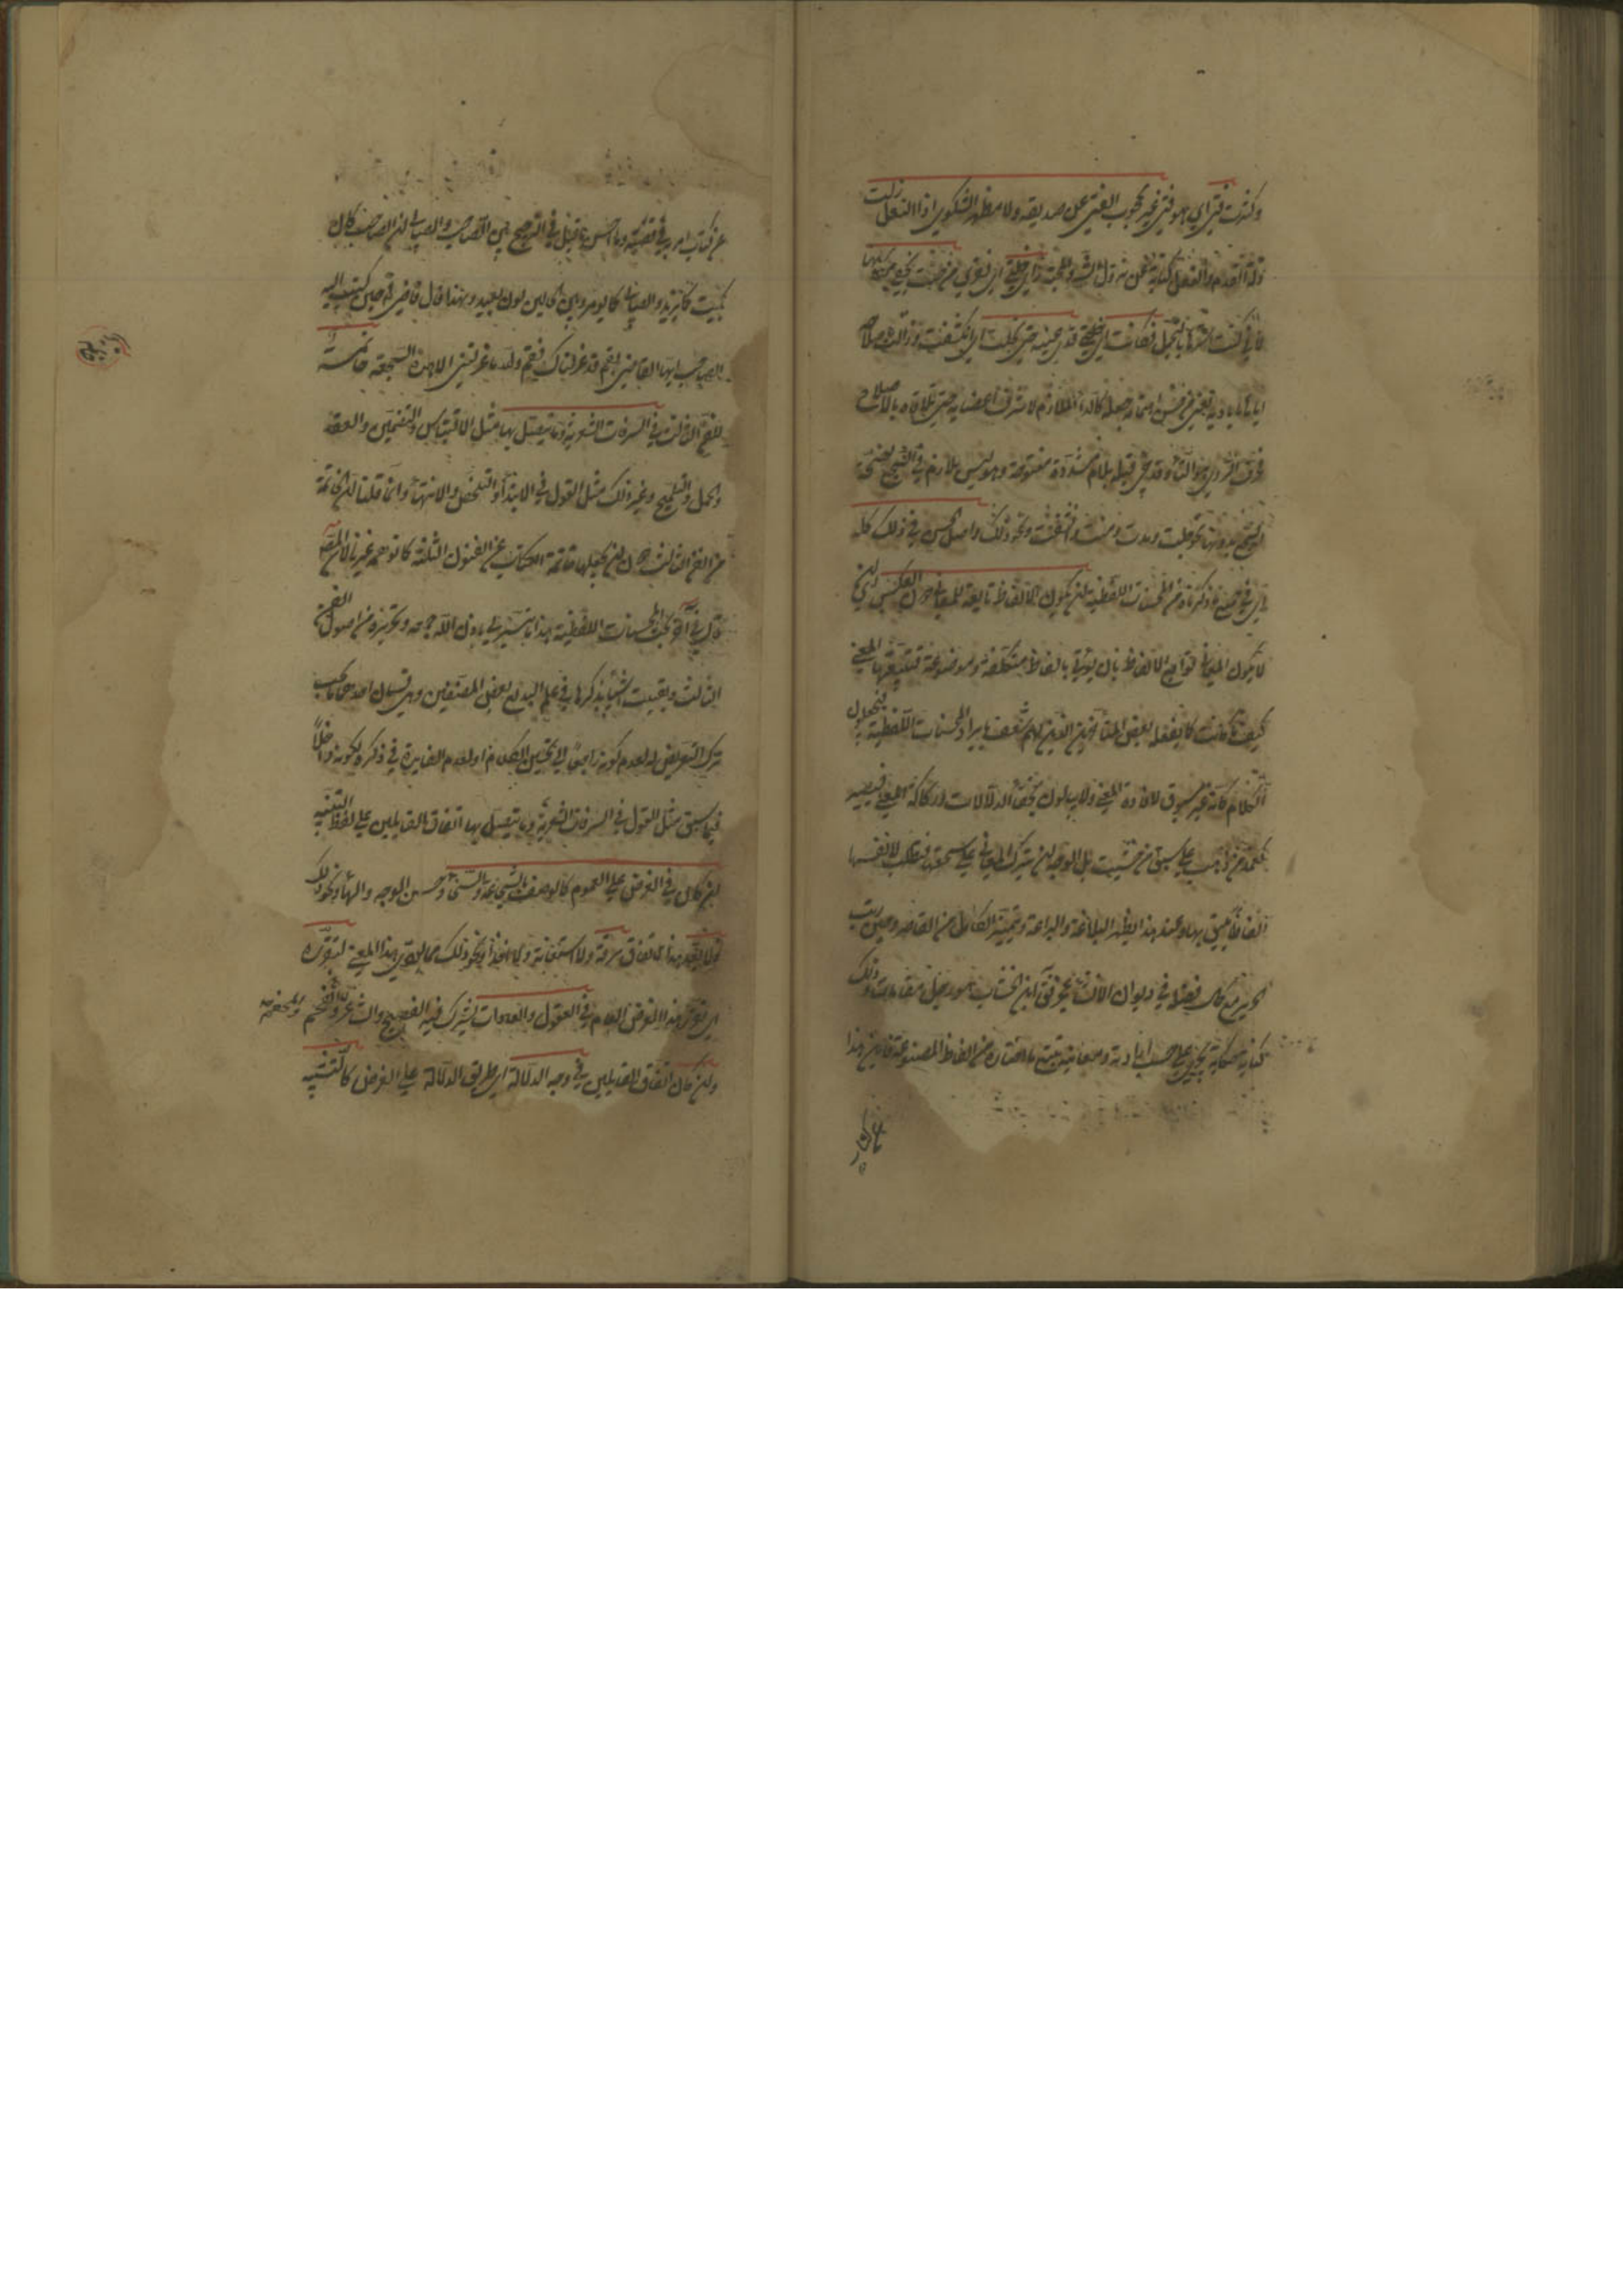 وكثرت فتى اي هو فتى غير محجوب الغنى عن صديقه ولا مظهر الشكوى اذا النعل زلت
زلة القدم والنعل كناية عن نزول الشر والمحنة رأى خلتي اي فقري من حيث يخفى مكانها
لاني كنت استرها بالتجمل فكانت اي خلتي قذى عينيه حتى تجلت اي انكشفت وزالت باصلاحه
اياها باياديه يعني من حسن اهتمامه جعله كالداء الملازم لاشرف اعضائه حتى تلافاه بالاصلاح
فحرف الروي هو التاء وقد جئ قبله بلام مشددة مفتوحة وهو ليس بلازم في السجع لصحة
السجع بدونها نحو جلت ومدت ومنت وانشقت ونحو ذلك واصل الحسن في ذلك كله
اي في جميع ما ذكر من المحسنات اللفظية ان يكون الالفاظ تابعة للمعاني دون العكس اي ان
لا يكون المعاني توابع الالفاظ بان يؤتى بالفاظ متكلفة مصنوعة فيتبعها المعنى
كيف ما كانت كما يفعله بعض المتأخرين الذين لهم شغف بايراد المحسنات اللفظية فيجعلون
الكلام كانه غير مسوق لافادة المعنى ولا يبالون بخفاء الدلالات وركاكة المعنى فيصير
كغمد من ذهب على سيف من خشب بل الوجه ان يترك المعاني على سجيتها فتطلب لانفسها
الفاظا يليق بها وعند هذا يظهر البلاغة والبراعة ويتميز الكامل من القاصر وحين رتب
الحريري مع كمال فضله في ديوان الانشاء عجز فقال ابن الخشاب هو رجل مقاماتي وذلك
كتابه حكاية يجري على حسب ارادته ومعانيه يتبع ما اختاره من الفاظ المصنوعة فاين هذا
عن كتاب امر به في قضية وما احسن ما قيل في الترجيح بين الصاحب والصابي ان الصاحب كان
يكتب كما يريد والصابي كما يومر وبين الحالين بون بعيد ولهذا قال قاضي قم حين كتب اليه
الصاحب ايها القاضي بقم قد عزلناك فقم والله ما عزلتني الا هذه السجعة خاتمة
للفن الثالث في السرقات الشعرية وما يتصل بها مثل الاقتباس والتضمين والعقد
والحل والتلميح وغير ذلك مثل القول في الابتداء والتخلص والانتهاء وانما قلنا ان الخاتمة
من الفن الثالث دون ان يجعلها خاتمة الكتاب عن الفنون الثلثة كما توهمه غيرنا لان المصنف
قال في آخر بحث المحسنات اللفظية هذا ما تيسر لي باذن الله جمعه وتحريره من اصول الفن
الثالث وبقيت اشياء يذكرها في علم البديع بعض المصنفين وهي قسمان احدهما ما يجب
ترك التعرض له لعدم كونه راجعا الى تحسين الكلام او لعدم الفايدة في ذكره لكونه داخلا
فيما سبق مثل القول في السرقات الشعرية وما يتصل بها اتفاق القايلين على لفظ التثنية
ان كان في الغرض على العموم كالوصف بالشجاعة والسخاء وحسن الوجه والبهاء ونحو ذلك
فلا يعد هذا الاتفاق سرقة ولا استعانة ولا اخذا ونحو ذلك مما يؤدي هذا المعنى لتقرره
اي تقرر هذا الغرض العام في العقول والعادات يشترك فيه الفصيح والاعجم والشاعر والمفحم
وان كان اتفاق القايلين في وجه الدلالة اي طريق الدلالة على الغرض كالتشبيه